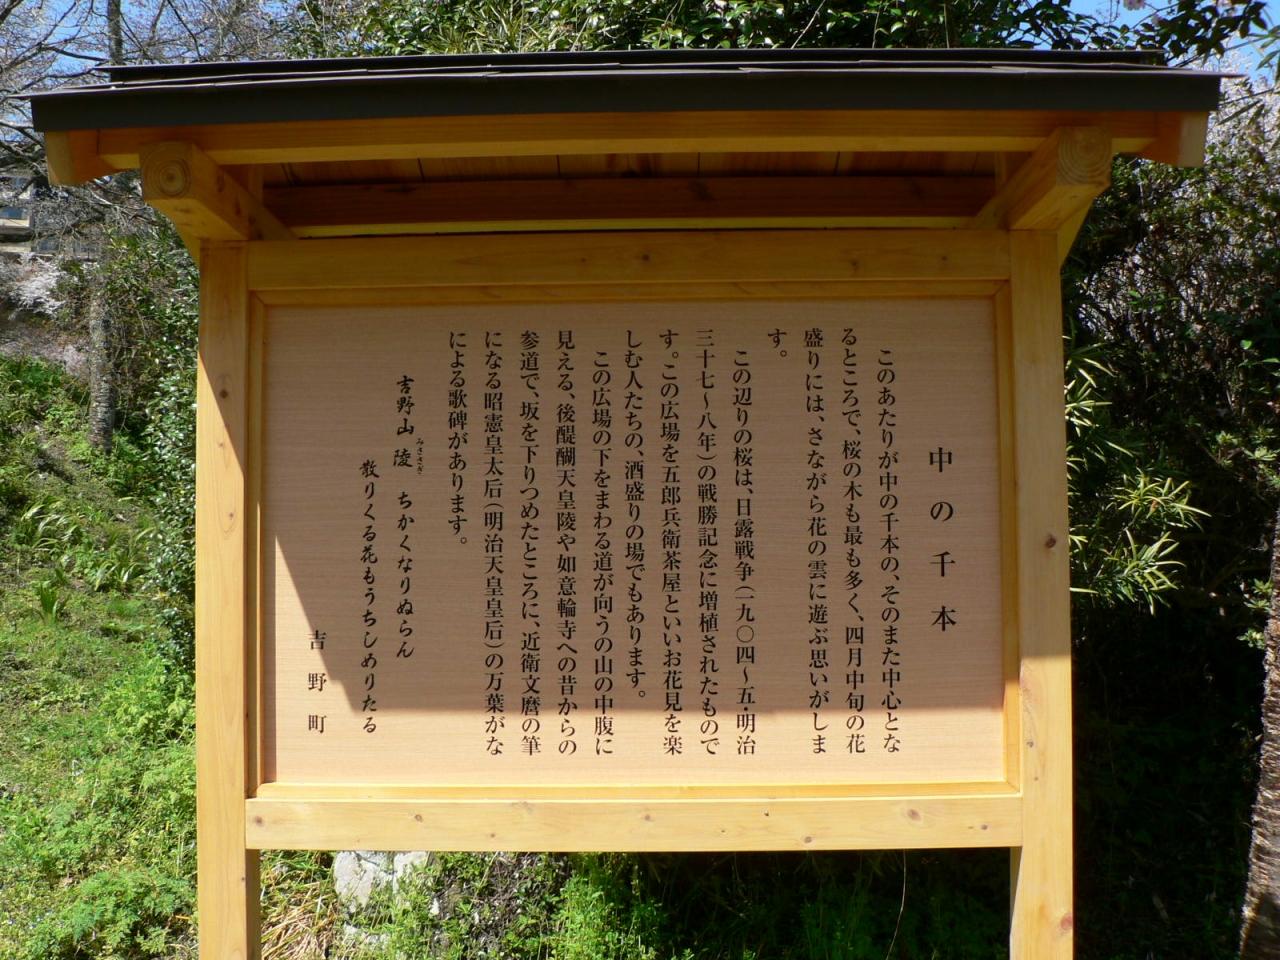 中の千本
このあたりが中の千本の、そのまた中心とな
るところで、桜の木も最も多く、四月中旬の花
盛りには、さながら花の雲に遊ぶ思いがしま
す。
この辺りの桜は、日露戦争(一九〇四〜五・明治
三十七〜八年)の戦勝記念に増植されたもので
す。この広場を五郎兵衛茶屋といいお花見を楽
しむ人たちの、酒盛りの場でもあります。
この広場の下をまわる道が向うの山の中腹に
見える、後醍醐天皇陵や如意輪寺への昔からの
参道で、坂を下りつめたところに、近衛文麿の筆
になる昭憲皇太后(明治天皇皇后)の万葉がな
による歌碑があります。
吉野山陵 ちかくなりぬらん
みささぎ
散りくる花もうちしめりたる
吉野町